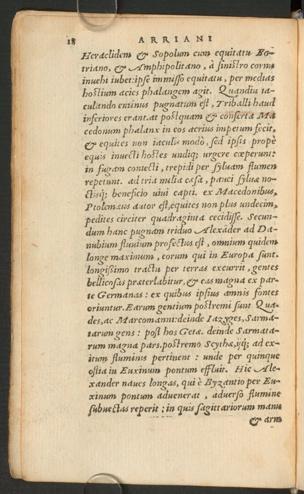 18 ARRIANI
Heraclidem & Sopolum cum equitatu Bo-
triano, & Amphipolitano, à sinistro cornu
inuehi iubet: ipse immisso equitatu, per medias
hostium acies phalangem agit. Quandiu ia-
culando eminus pugnatum est, Triballi haud
inferiores erant. at postquam & conserta Ma
cedonum phalanx in eos acrius impetum fecit,
& equites non iaculis modò, sed ipsis propè
equis inuecti hostes undiq; urgere cœperunt:
in fugam conuecti, trepidi per syluam flumen
repetunt. ad tria milia cæsa, pauci syluæ no-
ctisq; beneficio uiui capti. ex Macedonibus,
Ptolemæus autor est, equites non plus undecim,
pedites circiter quadraginta cecidisse. Secun-
dum hanc pugnam triduo Alexāder ad Da-
nubium fluuium profectus est, omnium quidem
longe maximum, eorum qui in Europa sunt.
longissimo tractu per terras excurrit, gentes
bellicosas præterlabitur, & eas magna ex par-
te Germanas: ex quibus ipsius amnis fontes
oriuntur. Earum gentium postremi sunt Qua-
des, ac Marcomanni: deinde Iazyges, Sarma-
tarum gens: post hos Getæ. deinde Sarmata-
rum magna pars. postremo Scythæ, ijq; ad ex-
itum fluminis pertinent: unde per quinque
ostia in Euxinum pontum effluit. Hic Ale-
xander naues longas, quæ è Byzantio per Eu-
xinum pontum aduenerat, aduerso flumine
subuectas reperit: in quis sagittariorum manu
& arm